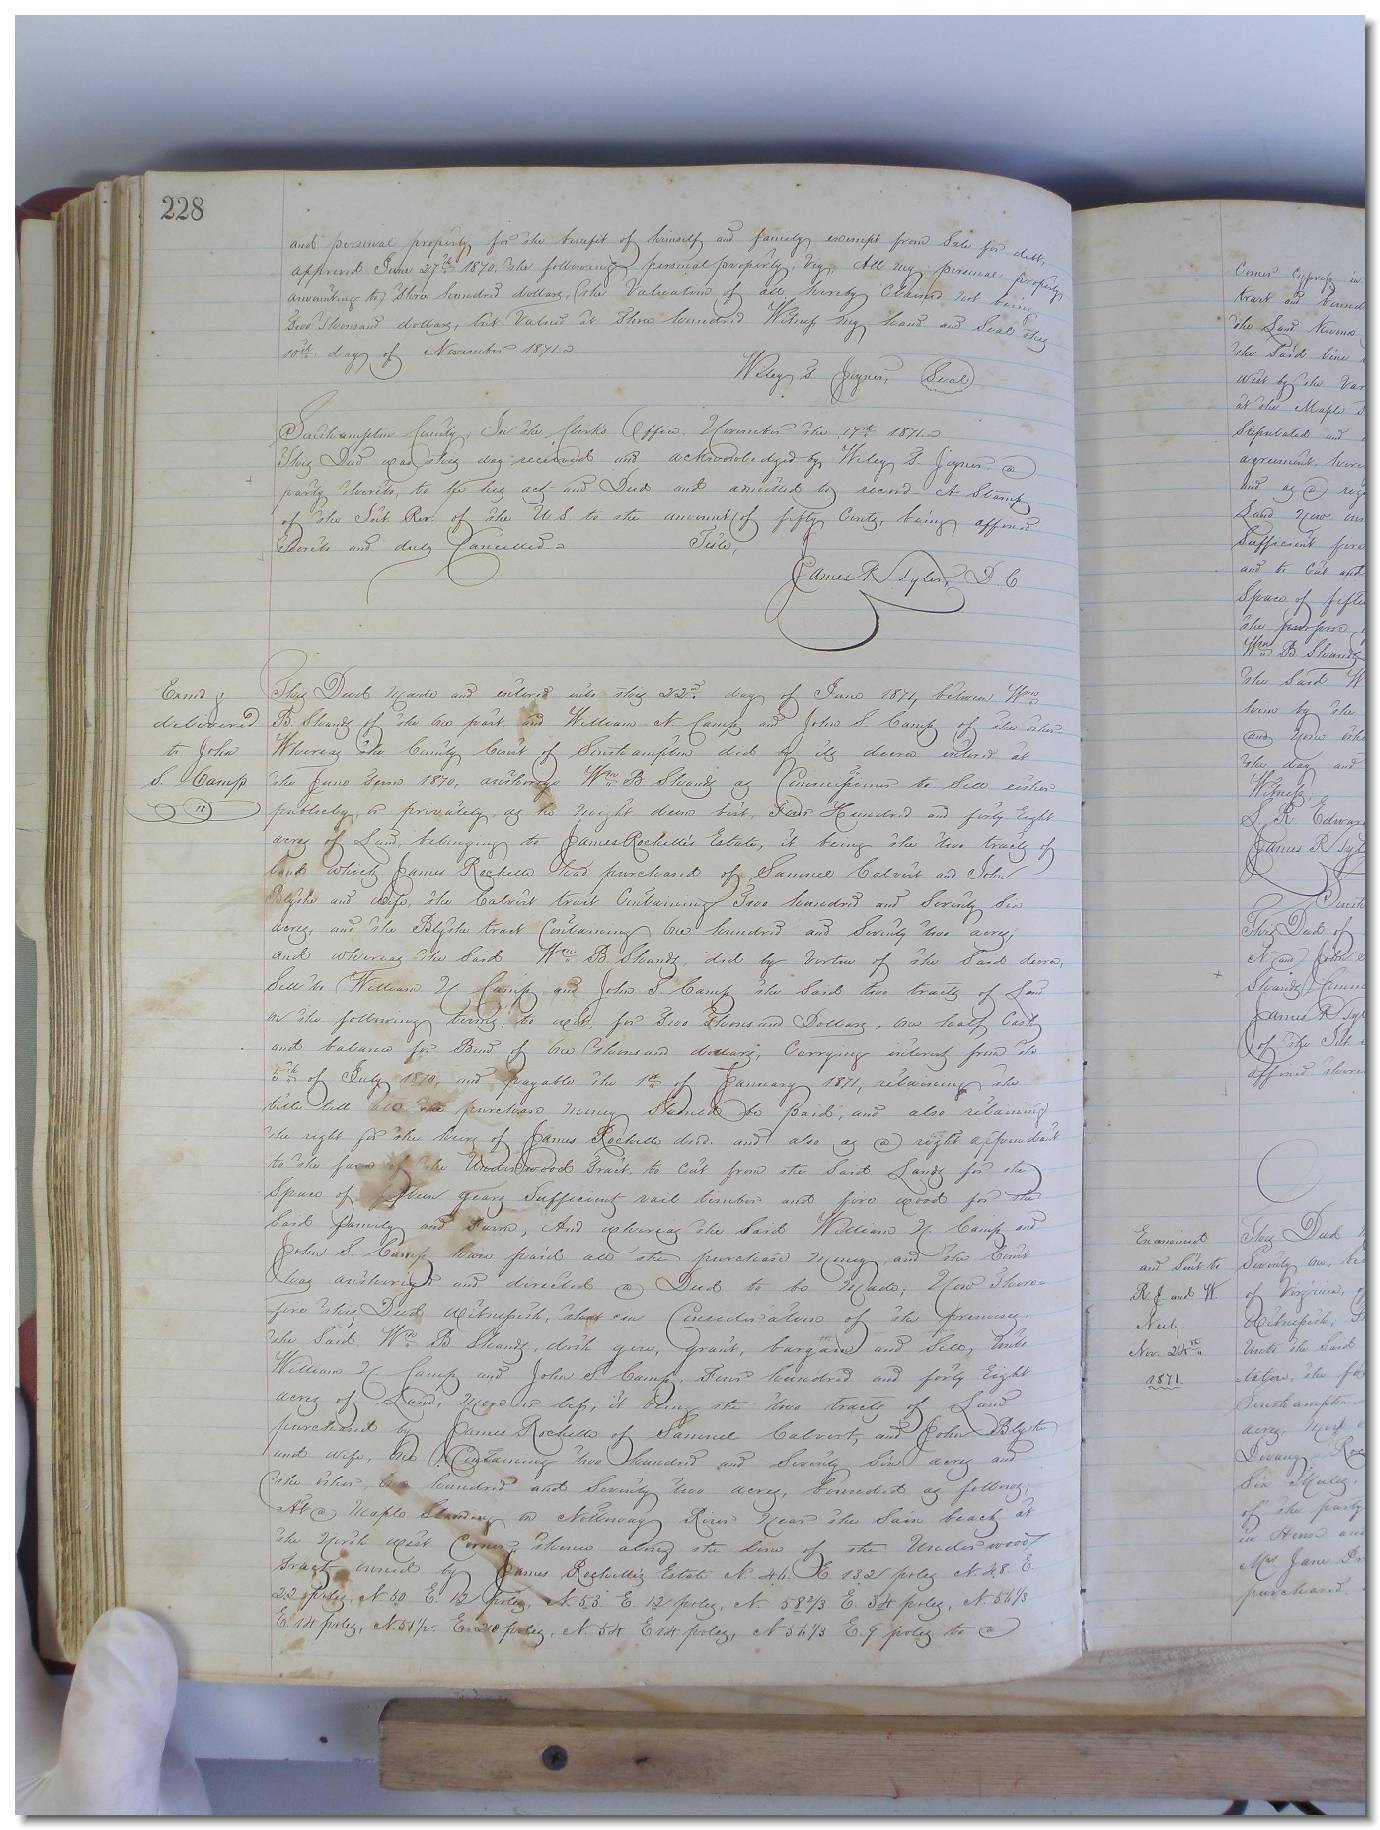 228
and personal property for the benefit of himself and family exempt from Sale for debt,
approved June 27th 1870, the following personal property, viz, All my personal property
amounting to Three hundred dollars, the Valuation of all hereby Claimed not being
Two Thousand dollars, but Valued at Three hundred Witness my hand and Seal this
10th day of November 1871.
Wiley T Joyner, Seal
Southampton County, In the Clerks Office November the 17th 1871.
This Deed was this day received and acknowledged by Wiley T. Joyner a
party thereto, to be his act and Deed and admitted to record A Stamp
of the Int Rev. of the U.S. to the amount of fifty Cents, being affixed
thereto and duly Cancelled
Teste,
James R Tyler, D.C
Examd &
delivered
to John
S. Camp
This Deed Made and entered into this 22nd day of June 1871, between Wm
B Shands of the one part and William N. Camp and John S Camp of the other
Whereas the County Court of Southampton did by its decree entered at
the June term 1870, authorize Wm B Shands as Commissioner to Sell either
publicly, or privately, as he might deem best, Four Hundred and forty Eight
acres of Land, belonging to James Rochelle's Estate, it being the two tracts of
land which James Rochelle had purchased of Samuel Calvert and John
Blythe and wife, the Calvert tract Containing Two hundred and Seventy Six
acres and the Blythe tract Containing One hundred and Seventy two acres,
and whereas the Said Wm B. Shands, did by Virtue of the Said decree,
Sell to William N Camp and John S. Camp the Said two tracts of Land
on the following terms to wit, for Two Thousand Dollars, One half Cash
and balance for Bond of One Thousand dollars, Carrying interest from the
5th of July 1870, and payable the 1st of January 1871, retaining the
title till all the purchase money Should be paid, and also retaining
the right for the heirs of James Rochelle decd. and also as a right appendant
to the farm of the Underwood Tract, to Cut from the Said Lands for the
Space of fifteen years Sufficient rail timber and fire wood for the
Said family and farm, And whereas the Said William N. Camp and
John S. Camp have paid all the purchase Money, and the Court
has authorized and directed a Deed to be Made, Now There-
fore this Deed witnesseth, that in Consideration of the premises
the Said Wm B Shands, doth give, grant, bargain and Sell, Unto
William N. Camp and John S. Camp, Four hundred and forty Eight
acres of Land, More or less, it being the two tracts of Land
purchased by James Rochelle of Samuel Calvert, and John Blythe
and wife, One Containing two hundred and Seventy Six acres and
the other, One hundred and Seventy two acres, bounded as follows,
At a Maple Standing on Nottoway River Near the Sain beach at
the North west Corner, thence along the line of the Underwood
Tract owned by James Rochelle's Estate N. 44. E 132 poles N. 48. E
22 poles, N 50 E. 12 poles, N. 53. E. 12 poles, N. 58 2/3 E. 34 poles, N. 56 1/3
E. 14 poles, N. 51 1/2. E. 20 poles, N. 54 E 14 poles, N 56 1/3 E. 9 poles to a
tract and
the Land
the Said line
west by the
at the Maple
Stipulated and
agreement,
and as a
Land Now
Sufficient
and to Cut
Space of
the purpose
Wm B Shands
the Said W
him by the
and
the day and
Witness,
S. R. Edwar
James R Tyl
This Deed of
N and John
Shands
James R Tyl
of the Int
affixed
and Sent to
R. J and W.
Neel
Nov. 24th
1871
This Deed
Seventy one,
of Virginia,
Witnesseth,
Unto the Said
Southampton
acres, More
Six Mules,
of the party
Mrs Jane
purchased